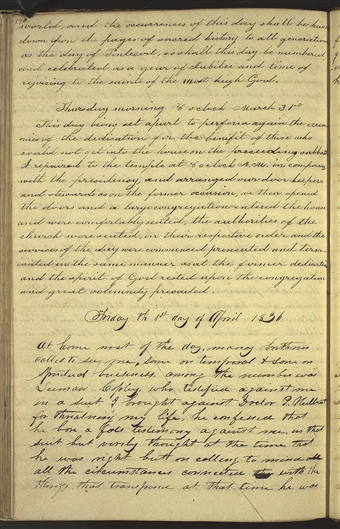 190
world, and the occurrences of this day shall be handed
down upon the pages of sacred history to all generations
as the day of Pentecost, so shall this day be numbered
and celebrated as a year of Jubilee and time of
rejoicing to the saints of the most high God.
Thursday morning 8 oclock March 31st
This day being set apart to perform again the cerem
onies of the dedication for the benefit of those who
could not get into the house on the preceeding sabbath
I repaired to the temple at 8 oclock A.M. in company
with the presidency, and arranged our door keepers
and stewards as on the former occasion, we then opened
the doors and a large congregation entered the house
and were comfortably seated, the authorities of the
church were seated, in their respective order and the
services of the day were commenced prosecuted and term-
inated in the same manner as at the former dedication
and the spirit of God rested upon the congregation
and great solemnity prevailed.
Friday the 1st day of April 1836
At home most of the day, many brethren
called to see me, some on temporal & some on
Spiritual business, among the number was
Leeman Copley, who testified against me
in a suit I brought against Doctor P. Hulbut
for threatning my life, he confessed that
he bore a false testimony against me, in that
suit but verily thought at the time that
he was right but on calling to mind
all the circumstances connected with the
things that transpired at that time he was